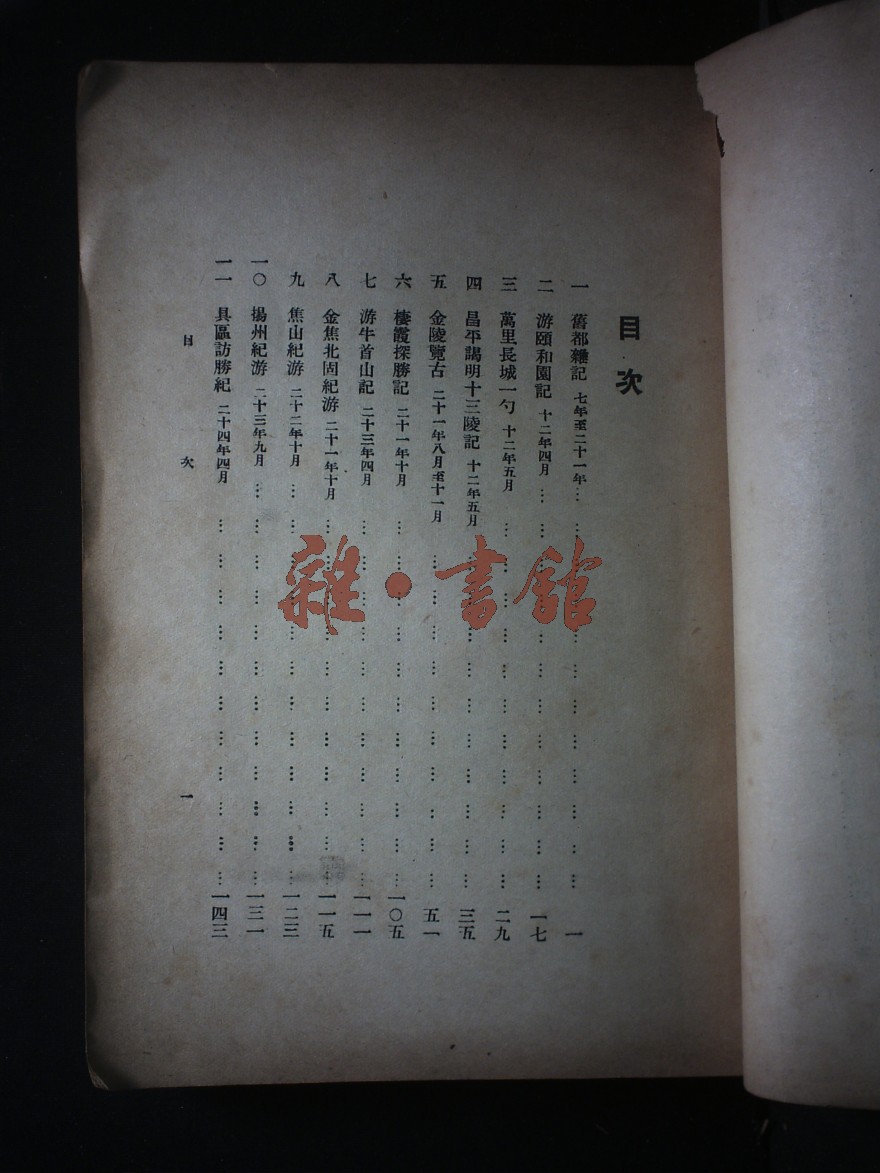 目次
一 舊都雜記 七年至二十一年 一
二 游頤和園記 十二年四月 一七
三 萬里長城一勺 十二年五月 二九
四 昌平謁明十三陵記 十二年五月 三五
五 金陵覽古 二十一年八月至十一月 五一
六 棲霞探勝記 二十一年十月 一〇五
七 游牛首山記 二十三年四月 一一一
八 金焦北固紀游 二十一年十月 一一五
九 焦山紀游 二十二年十月 一二三
一〇 揚州紀游 二十三年九月 一三一
一一 具區訪勝紀 二十四年四月 一四三
目次 一
雜·書館